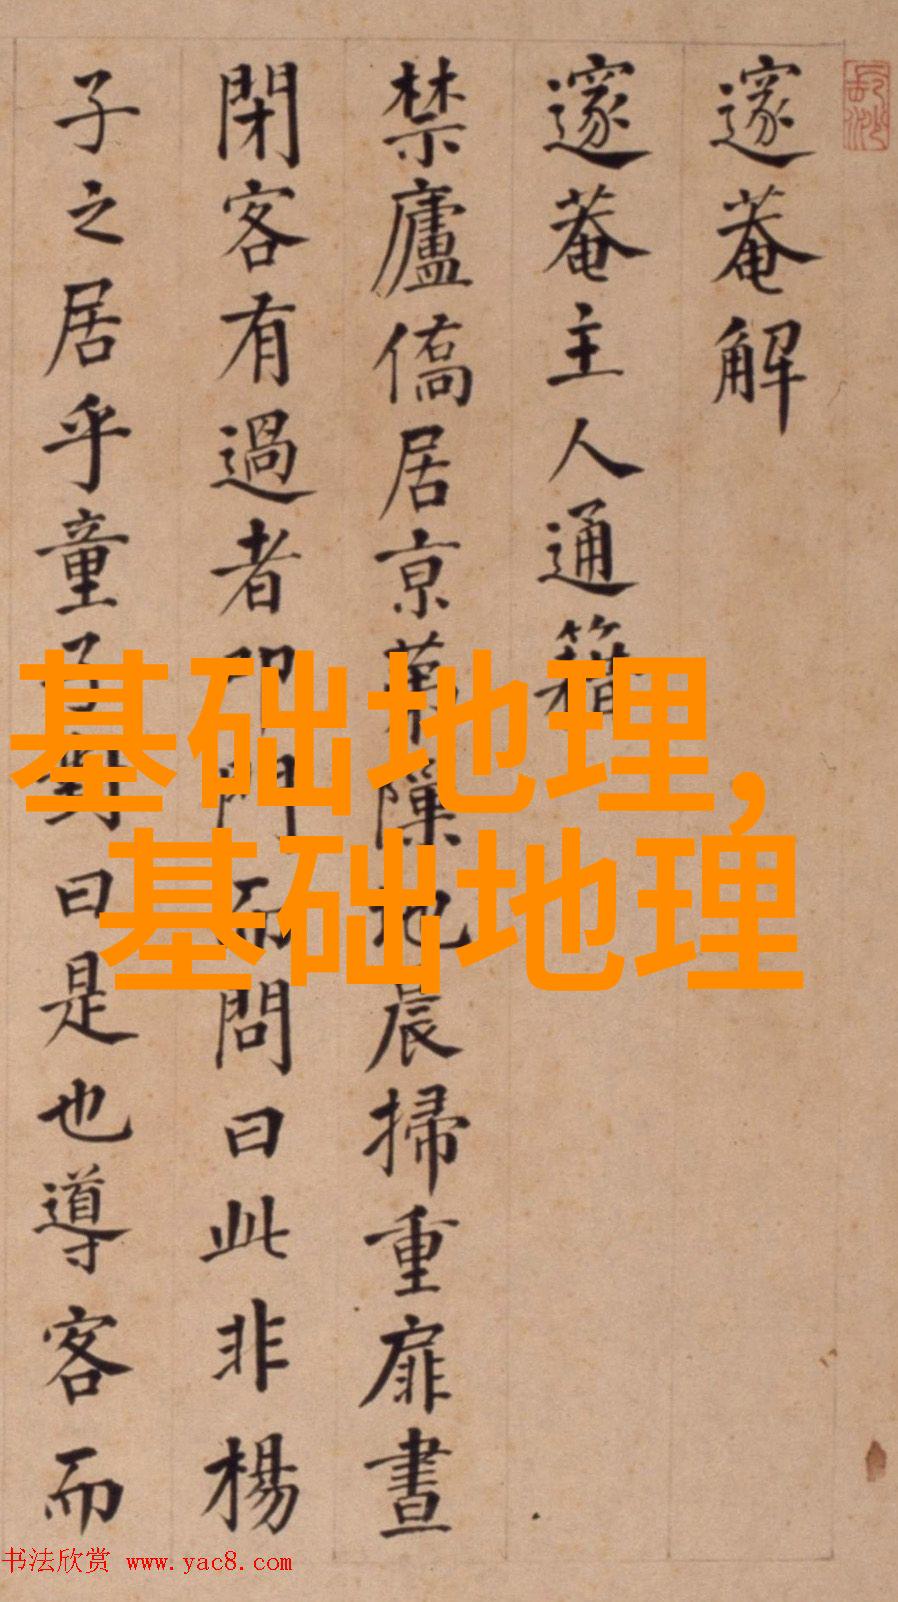 邃菴解
邃菴主人通籍
禁廬僑居京
地晨掃重扉晝
閉客有過者
門而問曰此非楊
子之居乎童子對曰是也導客而
基础地理,
基础地理
书法欣赏 www.yac8.com